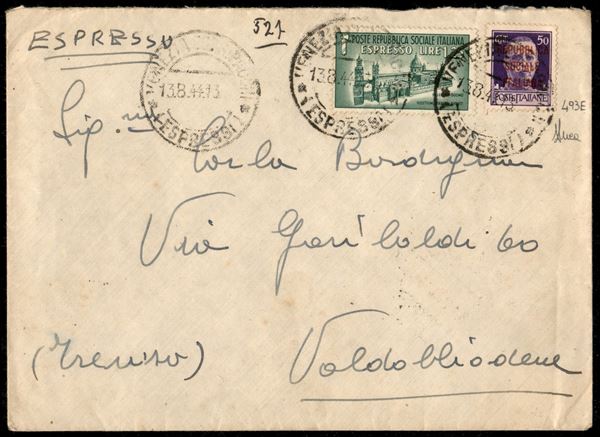 ESPRESSO
521
VENEZIA
13.8.44.13
ESPRESSI
POSTE REPUBBLICA SOCIALE ITALIANA
ESPRESSO LIRE 1
VENEZIA
13.8.44
ESPRESSI
50
REPUBBLICA
SOCIALE
ITALIANA
POSTE ITALIANE
VENEZIA
13.8.44
ESPRESSI
493E
Sig.na Carla Bordignon
Via Garibaldi 60
(Treviso) Valdobbiadene